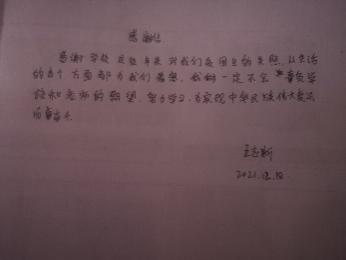 感谢信
感谢学校这些年来对我们贫困生的关照,从生活
的各个方面都为我们着想,我们一定不会辜负学
校和老师的期望,努力学习,为实现中华民族伟大复兴
而奋斗。
王志新
2021.12.18